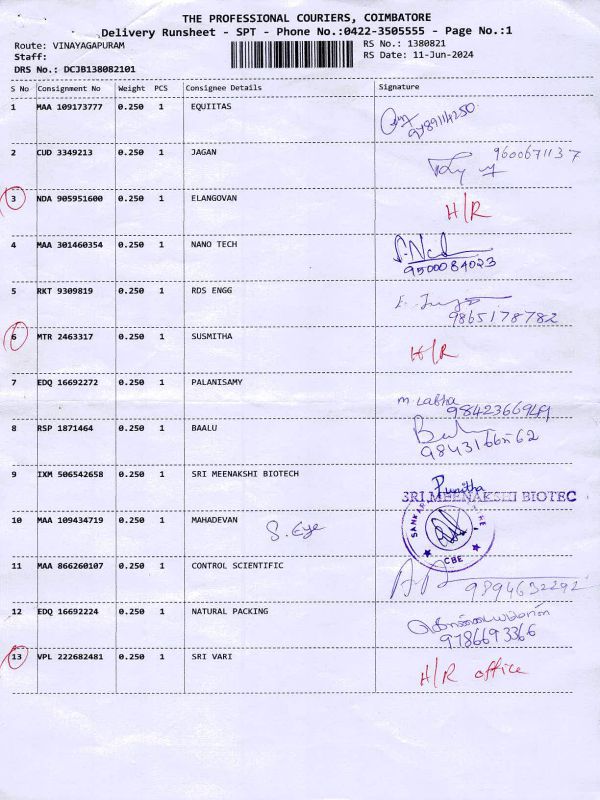 THE PROFESSIONAL COURIERS, COIMBATORE
Delivery Runsheet - SPT - Phone No.:0422-3505555 - Page No.:1
Route: VINAYAGAPURAM RS No.: 1380821
Staff: RS Date: 11-Jun-2024
DRS No.: DCJB138082101
S No Consignment No Weight PCS Consignee Details Signature
1 MAA 109173777 0.250 1 EQUIITAS
2 CUD 3349213 0.250 1 JAGAN 9600671137
3 NDA 905951600 0.250 1 ELANGOVAN H/R
4 MAA 301460354 0.250 1 NANO TECH
9500084023
5 RKT 9309819 0.250 1 RDS ENGG
9865178782
6 MTR 2463317 0.250 1 SUSMITHA H/R
7 EDQ 16692272 0.250 1 PALANISAMY
8 RSP 1871464 0.250 1 BAALU
9843166562
9 IXM 506542658 0.250 1 SRI MEENAKSHI BIOTECH Punitha
SRI MEENAKSHI BIOTEC
10 MAA 109434719 0.250 1 MAHADEVAN S. Eye
CBE
11 MAA 866260107 0.250 1 CONTROL SCIENTIFIC
9894632292
12 EDQ 16692224 0.250 1 NATURAL PACKING
9786693366
13 VPL 222682481 0.250 1 SRI VARI H/R office